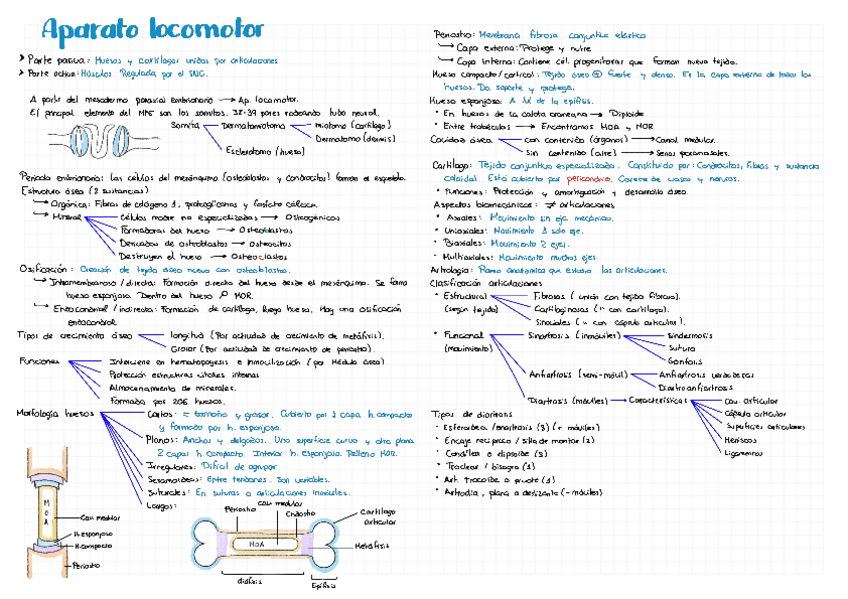 Aparato locomotor
> Parte pasiva: Huesos y cartílagos unidos por articulaciones
> Parte activa: Músculos. Regulada por el SNC.
A partir del mesodermo paraxial embrionario → Ap. locomotor.
El principal elemento del MPE son los somitas. 38-39 pares rodeando tubo neural.
Somita
Dermatomiotomo
miotomo (cartílago)
Dermatomo (dermis)
Esclerotomo (hueso)
Periodo embrionario: las células del mesénquima (osteoblastos y condrocitos) forman el esqueleto.
Estructura ósea (2 sustancias)
→ Orgánica: Fibras de colágeno 1, proteoglicanos y fosfato cálcico.
→ Mineral
Células madre no especializadas → Osteogénicas
Formadoras del hueso → Osteoblastos
Derivados de osteoblastos → Osteocitos
Destruyen el hueso → Osteoclastos
Osificación: Creación de tejido óseo nuevo con osteoblastos.
→ Intramembranoso / directa: Formación directa del hueso desde el mesénquima. Se forma
hueso esponjoso. Dentro del hueso MOR.
→ Endocondral / indirecta: Formación de cartílago, luego hueso. Hay una osificación
endocondral
Tipos de crecimiento óseo
longitud (Por actividad de crecimiento de metáfisis).
Grosor (Por actividad de crecimiento de periostio).
Funciones
Interviene en hematopoyesis e inmovilización (por Médula ósea)
Protección estructuras vitales internas
Almacenamiento de minerales.
Formado por 206 huesos.
Morfología huesos
Cortos: = tamaño y grosor. Cubierto por 1 capa h. compacto
y formado por h. esponjoso.
Planos: Anchos y delgados. Una superficie curva y otra plana
2 capas h. compacto. Interior h. esponjoso. Relleno MOR.
Irregulares: Difícil de agrupar
Sesamoideos: Entre tendones. Son variables.
Suturales: En suturas o articulaciones inmóviles.
Largos:
MOA
Cav. medular
H. esponjoso
H. compacto
Periostio
Periostio
cav. medular
Endostio
Cartílago
articular
MOA
Metáfisis
diáfisis
Epífisis
Periostio: Membrana fibrosa conjuntiva elástica
→ Capa externa: Protege y nutre
→ Capa interna: Contiene cél. progenitoras que forman nuevo tejido.
Hueso compacto/cortical: Tejido óseo + fuerte y denso. Es la capa externa de todos los
huesos. Da soporte y protege.
Hueso esponjoso: A nivel de la epífisis.
• En huesos de la calota craneana → Diploide
• Entre trabéculas → Encontramos MOA y MOR
Cavidades óseas
con contenido (órganos) → Canal medular.
Sin contenido (aire) → Senos paranasales.
Cartílago: Tejido conjuntivo especializado. Constituido por: Condrocitos, fibras y sustancia
coloidal. Está cubierto por pericondrio. Carece de vasos y nervios.
• Funciones: Protección y amortiguación y desarrollo óseo.
Aspectos biomecánicos: ≠ articulaciones
• Axiales: Movimiento sin eje mecánico.
• Uniaxiales: Movimiento 1 solo eje.
• Biaxiales: Movimiento 2 ejes.
• Multiaxiales: Movimiento muchos ejes
Artrología: Rama anatómica que estudia las articulaciones.
Clasificación articulaciones
• Estructural
(según tejido)
Fibrosas (unión con tejido fibroso).
Cartilaginosas (" con cartílago).
Sinoviales (" con cápsula articular).
• Funcional
(movimiento)
Sinartrosis (inmóviles)
Sindesmosis
Sutura
Gonfosis
Anfiartrosis (semi-móvil)
Anfiartrosis verdaderas
Diartroanfiartrosis
Diartrosis (móviles) → Características
Cav. articular
Cápsula articular
Superficies articulares
Meniscos
Ligamentos
Tipos de diartrosis
• Esferoidea / enartrosis (3) (+ móviles)
• Encaje recíproco / silla de montar (2)
• Condílea o elipsoide (2)
• Troclear / bisagra (1)
• Art. trocoide o pivote (1)
• Artrodia, plana o deslizante (- móviles)